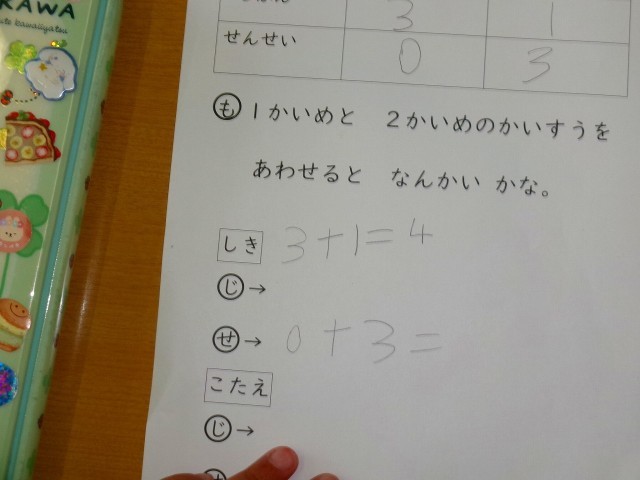 KAWA
3 1
せんせい 0 3
も 1かいめと 2かいめのかいすうを
あわせると なんかい かな。
しき 3+1=4
じ→
せ→ 0+3=
こたえ
じ→